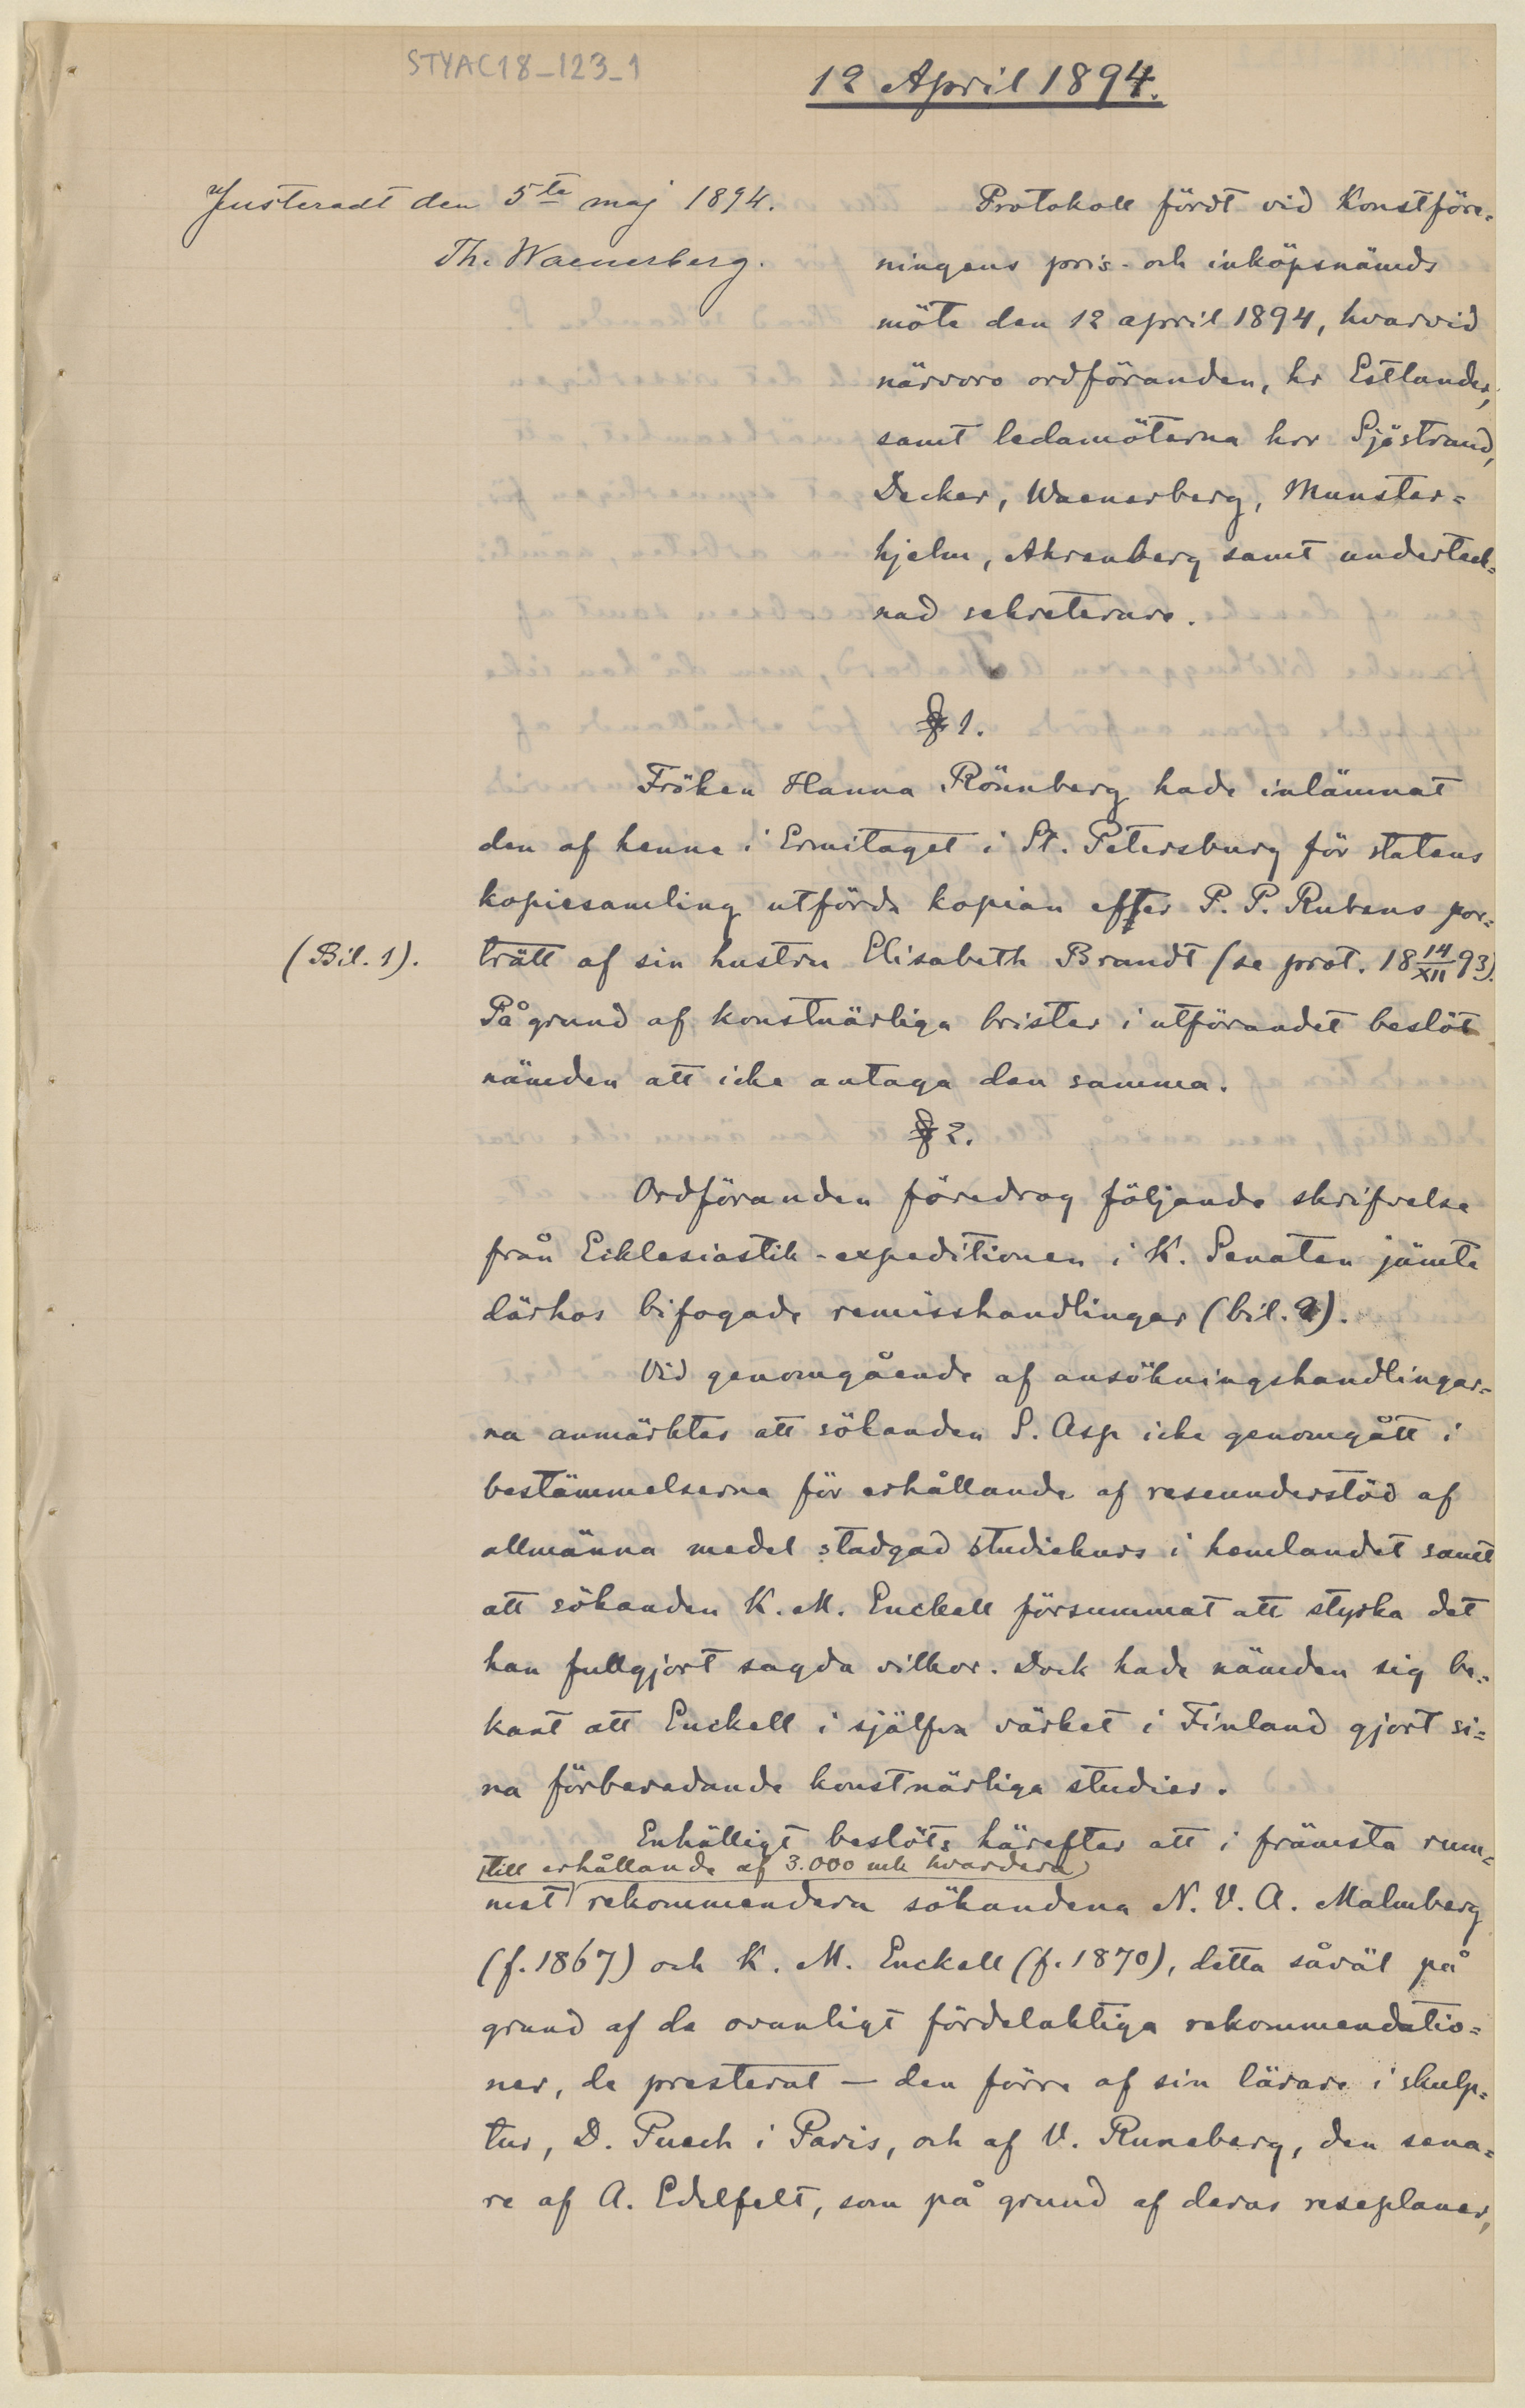 STYAC18_123_1
12 April 1894.
Justeradt den 5te maj 1894.
Th. Waenerberg.
Protokoll fördt vid Konstföre-
ningens pris- och inköpsnämds
möte den 12 april 1894, hvarvid
närvoro ordföranden, hr Estlander,
samt ledamöterna hrr Sjöstrand,
Decker, Waenerberg, Munster-
hjelm, Ahrenberg samt underteck-
nad sekreterare.
§ 1.
Fröken Hanna Rönnberg hade inlämnat
den af henne i Ermitaget i St. Petersburg för statens
kopiesamling utförda kopian efter P. P. Rubens por-
(Bil. 1).
trätt af sin hustru Elisabeth Brandt (se prot. 18 14/XII 93).
På grund af konstnärliga brister i utförandet beslöt
nämden att icke antaga den samma.
§ 2.
Ordföranden föredrog följande skrifvelse
från Ecklesiastik-expeditionen i K. Senaten jämte
därhos bifogade remisshandlingar (bil. 2).
Vid genomgående af ansökningshandlingar-
na anmärktes att sökanden S. Asp icke genomgått i
bestämmelserna för erhållande af reseunderstöd af
allmänna medel stadgad studiekurs i hemlandet samt
att sökanden K. M. Enckell försummat att styrka det
han fullgjort sagda vilkor. Dock hade nämden sig be-
kant att Enckell i själfva värket i Finland gjort si-
na förberedande konstnärliga studier.
Enhälligt beslöts härefter att i främsta rum-
till erhållande af 3.000 mk hvardera
met rekommendera sökandena N. V. A. Malmberg
(f. 1867) och K. M. Enckell (f. 1870), detta såväl på
grund af de ovanligt fördelaktiga rekommendatio-
ner, de presterat — den förre af sin lärare i skulp-
tur, D. Puech i Paris, och af V. Runeberg, den sena-
re af A. Edelfelt, som på grund af deras reseplaner,